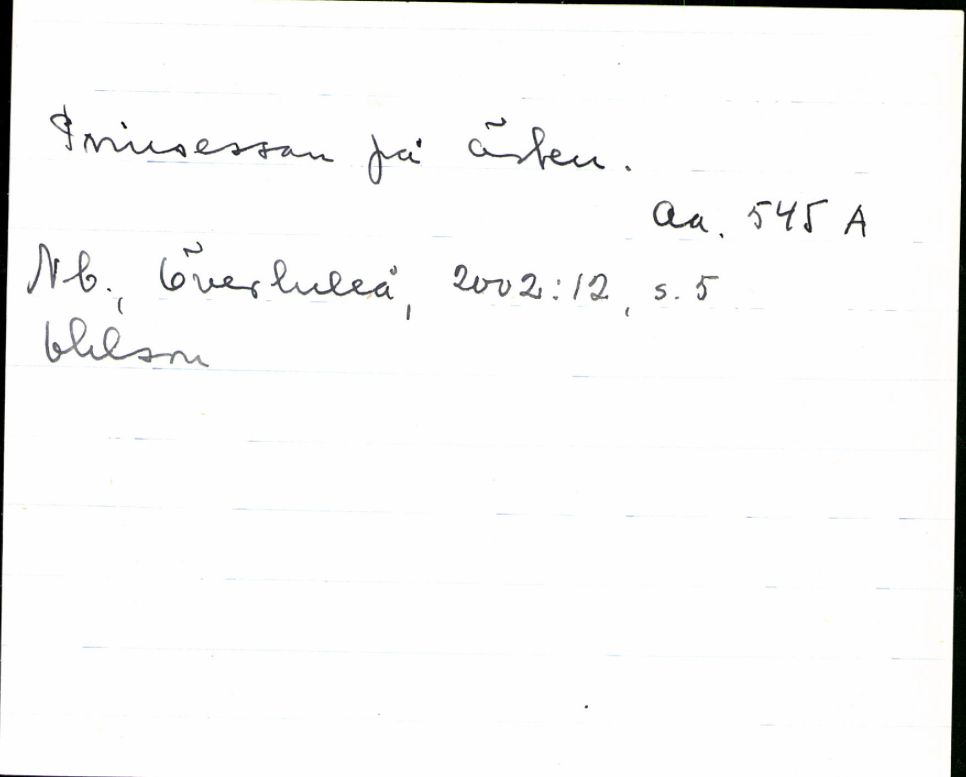 Prinsessan på ärten.
Aa. 545 A
Nb., Överluleå, 2002:12, s. 5
Ohlson